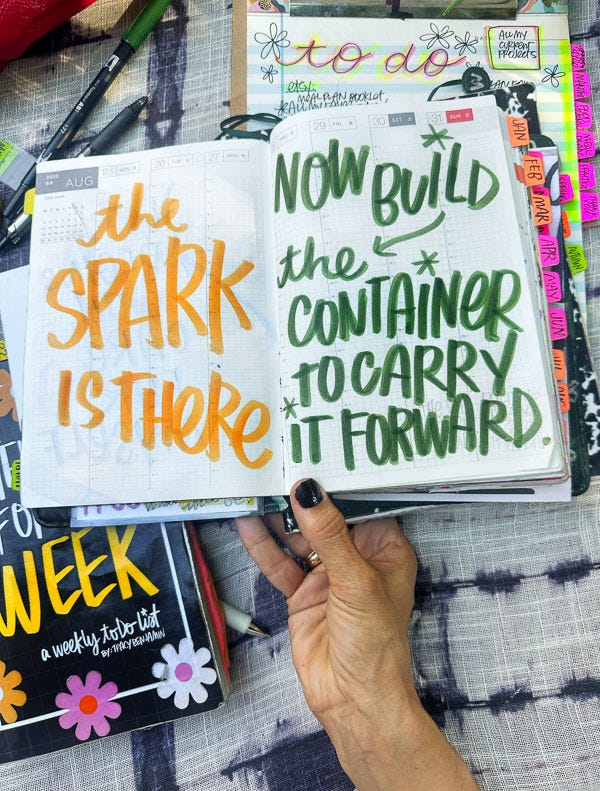 to do
ALL MY
CURRENT
PROJECTS
etsy:
MEAL PLAN BOOKLET,
2025
AUG
25 MON
26 TUE
27 WED
29 FRI
30 SAT
31 SUN
the
SPARK
IS THERE
NOW BUILD
the
CONTAINER
TO CARRY
IT FORWARD.
JAN
FEB
MAR
APR
MAY
JUN
JUL
AUG
AUTUMN
FOR
WEEK
a weekly to Do list
BY: TRACY BENJAMIN